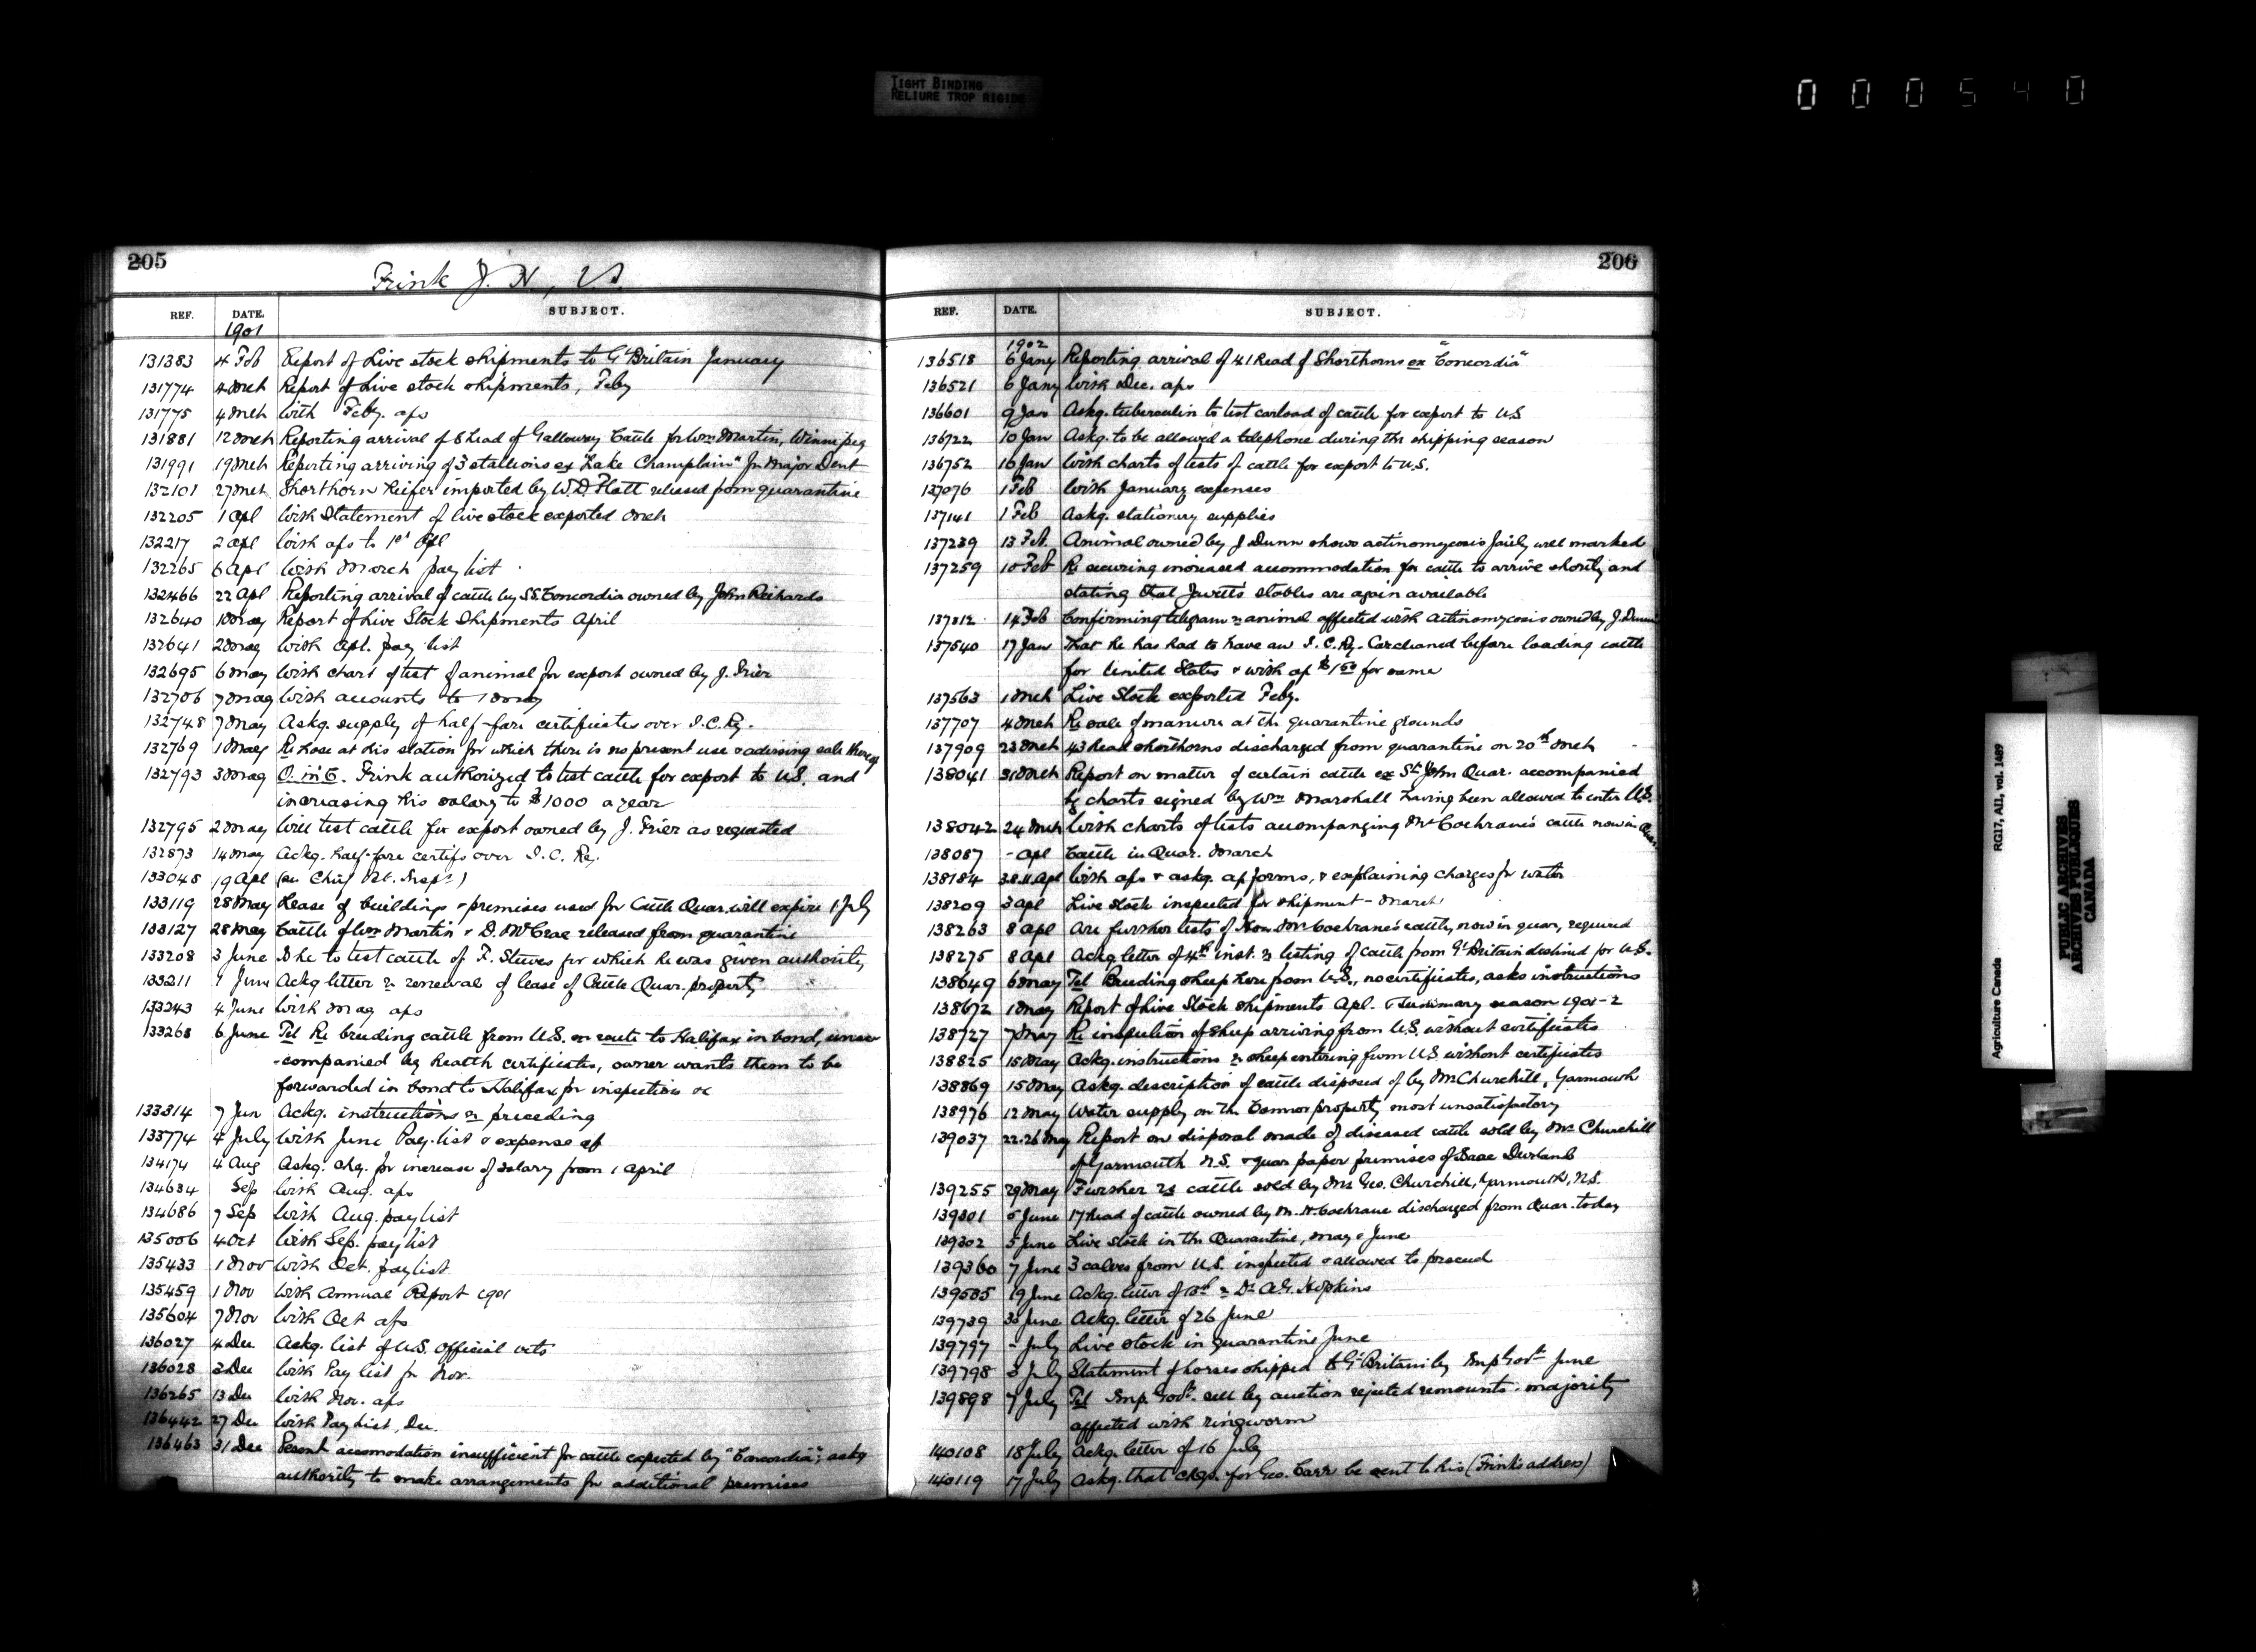 TIGHT BINDING
RELIURE TROP RIGIDE
000540
205
Frink J. H., V.S.
REF. DATE. SUBJECT.
1901
131383 4 Feb Report of Live stock shipments to Gt Britain January
131774 4 Mch Report of Live stock shipments, Feby
131775 4 Mch With Feby. afs
131881 12 Mch Reporting arrival of 8 head of Galloway Cattle for Wm Martin, Winnipeg
131991 19 Mch Reporting arriving of 3 stallions ex "Lake Champlain" for Major Dent
132101 27 Mch Shorthorn heifer imported by W.D. Flatt released from quarantine
132205 1 Apl With Statement of live stock exported Mch
132217 2 Apl With afs to 1st Apl
132265 6 Apl With March pay list
132466 22 Apl Reporting arrival of cattle by SS. Concordia owned by John Richards
132640 1 May Report of Live Stock Shipments April
132641 2 May With Apl. pay list
132695 6 May With chart of test of animal for export owned by J. Frier
132706 7 May With accounts to 1 May
132748 7 May Askg. supply of half-fare certificates over I.C.Ry.
132769 1 May Re hose at his station for which there is no present use & advising sale thereof
132793 3 May O. in C. Frink authorized to test cattle for export to U.S. and
increasing his salary to $1000 a year
132795 2 May Will test cattle for export owned by J. Frier as requested
132873 14 May Ackg. half-fare certifs over I.C. Ry.
133048 19 Apl (See Chief Vet. Inspr.)
133119 28 May Lease of buildings & premises used for Cattle Quar. will expire 1 July
133127 28 May Cattle of Wm Martin & D. McCrae released from quarantine
133208 3 June Is he to test cattle of F. Steeves for which he was given authority
133211 1 June Ackg letter re renewal of lease of Cattle Quar. property
133243 4 June With May afs
133268 6 June Tel Re breeding cattle from U.S. en route to Halifax in bond, unac-
-companied by health certificates, owner wants them to be
forwarded in bond to Halifax for inspection &c
133314 7 Jun Ackg. instructions re preceding
133774 4 July With June Pay-list & expense af
134174 4 Aug Askg. chq. for increase of salary from 1 April
134634 Sep With Aug. afs
134686 7 Sep With Aug. pay list
135006 4 Oct With Sep. pay list
135433 1 Nov With Oct. pay list
135459 1 Nov With Annual Report 1901
135604 7 Nov With Oct afs
136027 4 Dec Askg. list of U.S. official vets
136028 2 Dec With Pay list for Nov.
136265 13 Dec With Nov. afs
136442 27 Dec With Pay list, Dec.
136463 31 Dec Present accomodation insufficient for cattle expected by "Concordia"; askg
authority to make arrangements for additional premises
206
REF. DATE. SUBJECT.
1902
136518 6 Jany Reporting arrival of 41 head of Shorthorns ex "Concordia"
136521 6 Jany With Dec. afs
136601 9 Jan Askg. tuberculin to test carload of cattle for export to U.S
136722 10 Jan Askg. to be allowed a telephone during the shipping season
136752 16 Jan With charts of tests of cattle for export to U.S.
137076 1 Feb With January expenses
137141 1 Feb Askg. stationery supplies
137239 13 Feb. Animal owned by J Dunn shows actinomycosis fairly well marked
137259 10 Feb Re securing increased accommodation for cattle to arrive shortly and
stating that Jewett's stables are again available
137312 14 Feb Confirming telegram re animal affected with actinomycosis owned by J. Dunn
137540 17 Jan That he has had to have an I.C.Ry. Car cleaned before loading cattle
for United States & with af $1.50 for same
137563 1 Mch Live Stock exported Feby.
137707 4 Mch Re sale of manure at the quarantine grounds
137909 23 Mch 43 head shorthorns discharged from quarantine on 20th Mch
138041 31 Mch Report on matter of certain cattle ex St. John Quar. accompanied
by charts signed by Wm Marshall having been allowed to enter U.S.
138042 24 Mch With charts of tests accompanying Mr Cochrane's cattle now in Quar.
138087 - Apl Cattle in Quar. March
138184 3.8.11. Apl With afs & askg. af forms, & explaining charges for water
138209 3 Apl Live stock inspected for shipment - March
138263 8 Apl Are further tests of Hon. Mr Cochrane's cattle, now in quar, required
138275 8 Apl Ackg letter of 4th inst. re testing of cattle from Gt Britain destined for U.S.
138649 6 May Tel Breeding sheep here from U.S., no certificates, asks instructions
138672 1 May Report of Live Stock shipments Apl. & Summary season 1901-2
138727 7 May Re inspection of sheep arriving from U.S. without certificates
138825 15 May Ackg. instructions re sheep entering from U.S. without certificates
138869 15 May Askg. description of cattle disposed of by Mr Churchill, Yarmouth
138976 12 May Water supply on the Connor property most unsatisfactory
139037 22-26 May Report on disposal made of diseased cattle sold by Mr Churchill
of Yarmouth N.S. & quar paper premises of Isaac Durland
139255 29 May Further re cattle sold by Mr Geo. Churchill, Yarmouth, N.S.
139301 5 June 17 head of cattle owned by M. H. Cochrane discharged from Quar. today
139302 5 June Live stock in the Quarantine, May & June
139360 7 June 3 calves from U.S. inspected & allowed to proceed
139585 19 June Ackg. letter of 13th re Dr A.G. Hopkins
139739 30 June Ackg. letter of 26 June
139797 - July Live stock in quarantine June
139798 3 July Statement of horses shipped to Gt Britain by Imp Govt June
139898 7 July Tel Imp. Govt. sell by auction rejected remounts. majority
affected with ringworm
140108 18 July Ackg. letter of 16 July
140119 17 July Askg. that chqs. for Geo. Carr be sent to his (Frink's address)
Agriculture Canada
RG17, AII, vol. 1489
PUBLIC ARCHIVES
ARCHIVES PUBLIQUES
CANADA